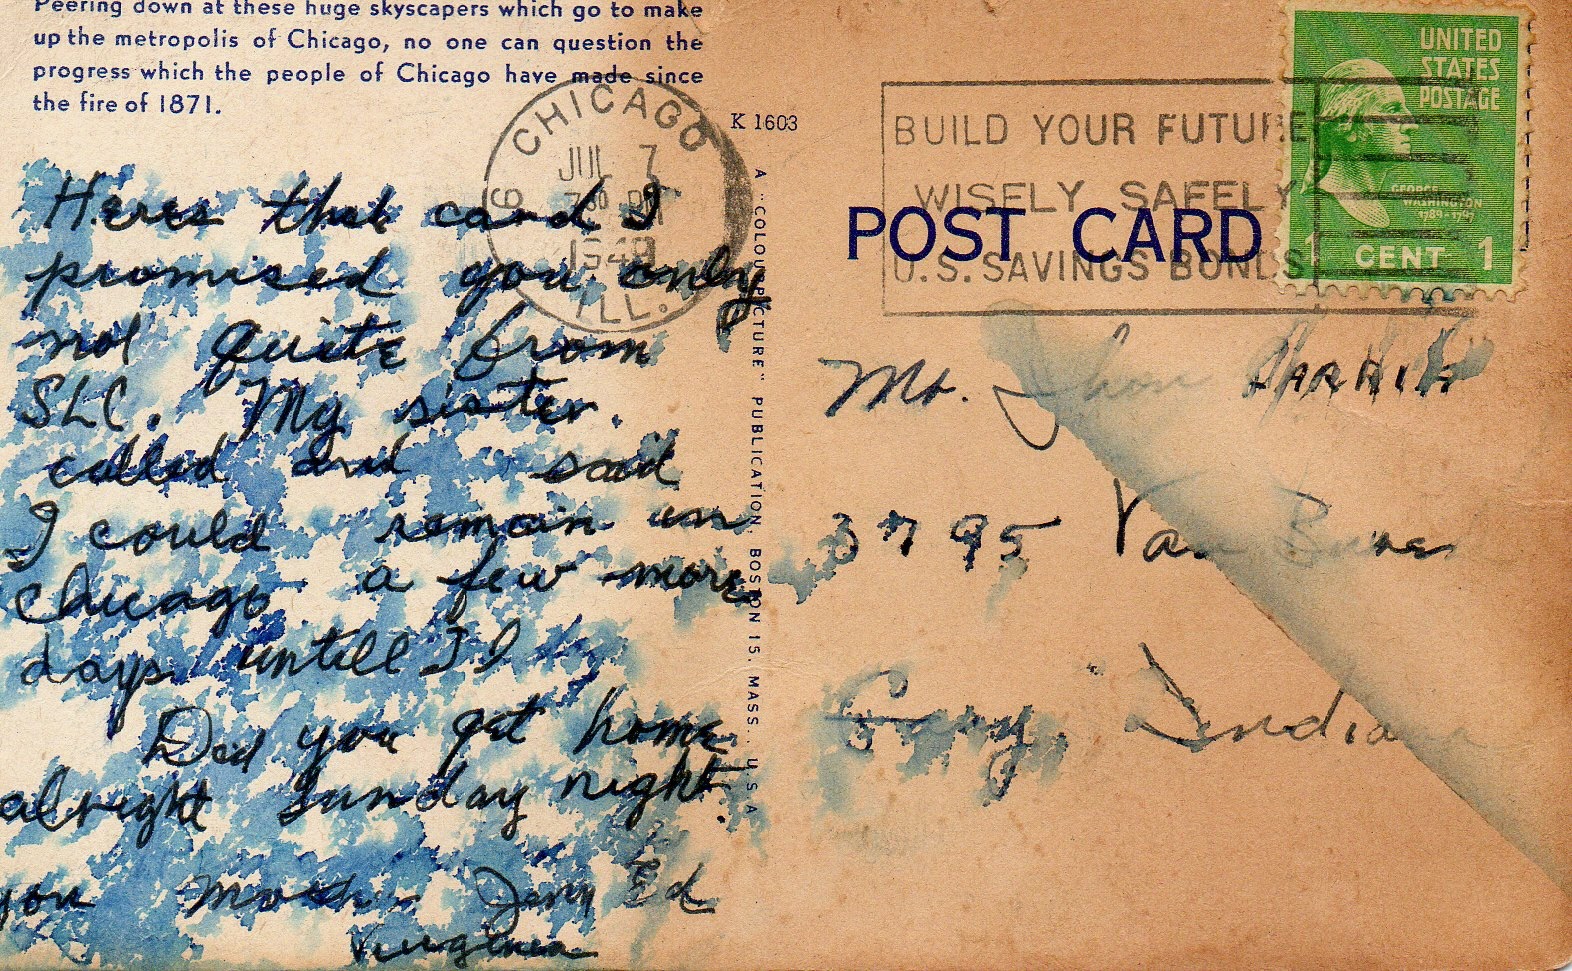 Peering down at these huge skyscapers which go to make
up the metropolis of Chicago, no one can question the
progress which the people of Chicago have made since
the fire of 1871.
Heres that card I
promised you only
not quite from
SLC. My sister.
called and said
I could remain in
Chicago a few more
days untill I
Did you get home
alright Sunday night.
you
Virginia
CHICAGO
JUL 7
ILL.
K 1603
A "COLOURPICTURE" PUBLICATION, BOSTON 15, MASS., U.S.A
BUILD YOUR FUTURE
WISELY SAFELY
U.S. SAVINGS BONDS
POST CARD
UNITED
STATES
POSTAGE
GEORGE
WASHINGTON
1789-1797
1 CENT 1
Mr.
3795 Van Buren
Gary, Indiana